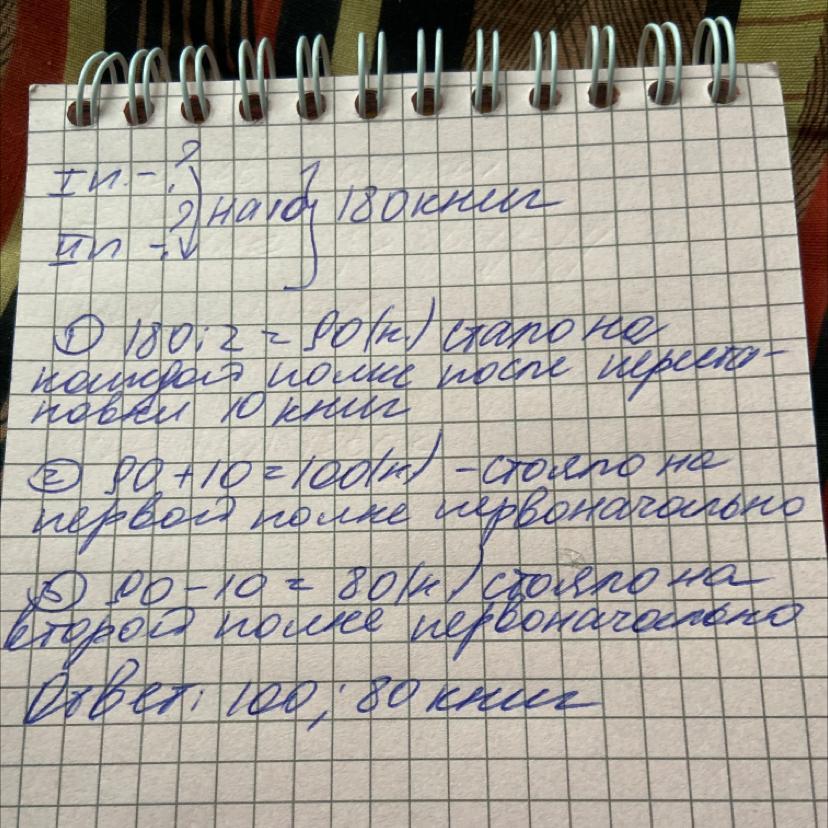 I п. - ?
на 10 } 180 книг
II п - ?
① 180 : 2 = 90 (к) стало на
каждой полке после переста-
новки 10 книг
② 90 + 10 = 100 (к) - стояло на
первой полке первоначально
③ 90 - 10 = 80 (к) стояло на
второй полке первоначально
Ответ: 100; 80 книг